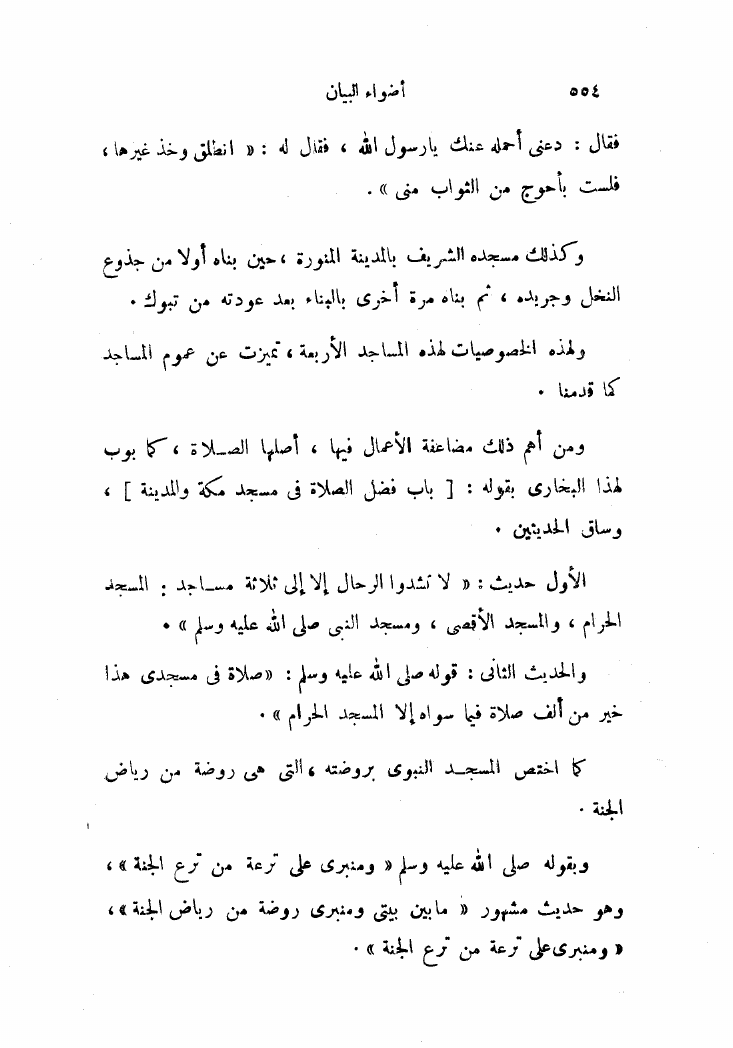 ٥٥٤ أضواء البيان
فقال : دعنى أحمله عنك يارسول الله ، فقال له : « انطلق وخذ غيرها ،
فلست بأحوج من الثواب منى » .
وكذلك مسجده الشريف بالمدينة المنورة ، حين بناه أولا من جذوع
النخل وجريده ، ثم بناه مرة أخرى بالبناء بعد عودته من تبوك .
ولهذه الخصوصيات لهذه المساجد الأربعة ، تميزت عن عموم المساجد
كما قدمنا .
ومن أهم ذلك مضاعفة الأعمال فيها ، أصلها الصـلاة ، كما بوب
لهذا البخارى بقوله : [ باب فضل الصلاة فى مسجد مكة والمدينة ] ،
وساق الحديثين .
الأول حديث : « لا تشدوا الرحال إلا إلى ثلاثة مساجد : المسجد
الحرام ، والمسجد الأقصى ، ومسجد النبى صلى الله عليه وسلم » .
والحديث الثانى : قوله صلى الله عليه وسلم : «صلاة فى مسجدى هذا
خير من ألف صلاة فيما سواه إلا المسجد الحرام » .
كما اختص المسجـد النبوى بروضته ، التى هى روضة من رياض
الجنة .
وبقوله صلى الله عليه وسلم « ومنبرى على ترعة من ترع الجنة » ،
وهو حديث مشهور « مابين بيتى ومنبرى روضة من رياض الجنة » ،
« ومنبرى على ترعة من ترع الجنة » .